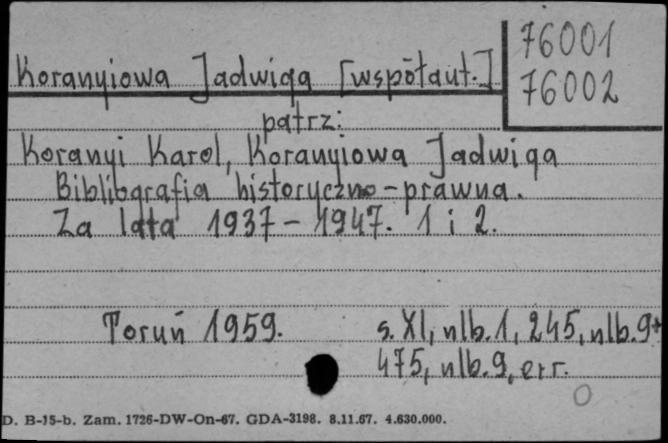 Koranyiowa Jadwiga [współaut.]
76001
76002
patrz:
Koranyi Karol, Koranyiowa Jadwiga
Bibliografia historyczno-prawna.
Za lata 1937-1947. 1 i 2.
Toruń 1959.
s. XI, nlb. 1, 245, nlb. 9+
475, nlb. 9, err.
D. B-15-b. Zam. 1726-DW-On-67. GDA-3198. 8.11.67. 4.630.000.